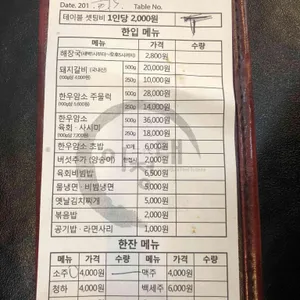 Date. 201 . . . Table No.
테이블 셋팅비 1인당 2,000원
한입 메뉴
메뉴 가격 수량
해장국 2,800원
돼지갈비 (국내산) 500g 20,000원
250g 10,000원
한우암소 주물럭 500g 28,000원
250g 14,000원
한우암소 육회·사시미 500g 36,000원
250g 18,000원
한우암소 초밥 6,000원
버섯추가 (양송이) 2,000원
육회비빔밥 6,500원
물냉면·비빔냉면 5,000원
옛날김치찌개 5,000원
볶음밥 2,000원
공기밥·라면사리 1,000원
한잔 메뉴
메뉴 가격 수량 메뉴 가격 수량
소주 4,000원 맥주 4,000원
청하 4,000원 백세주 6,000원